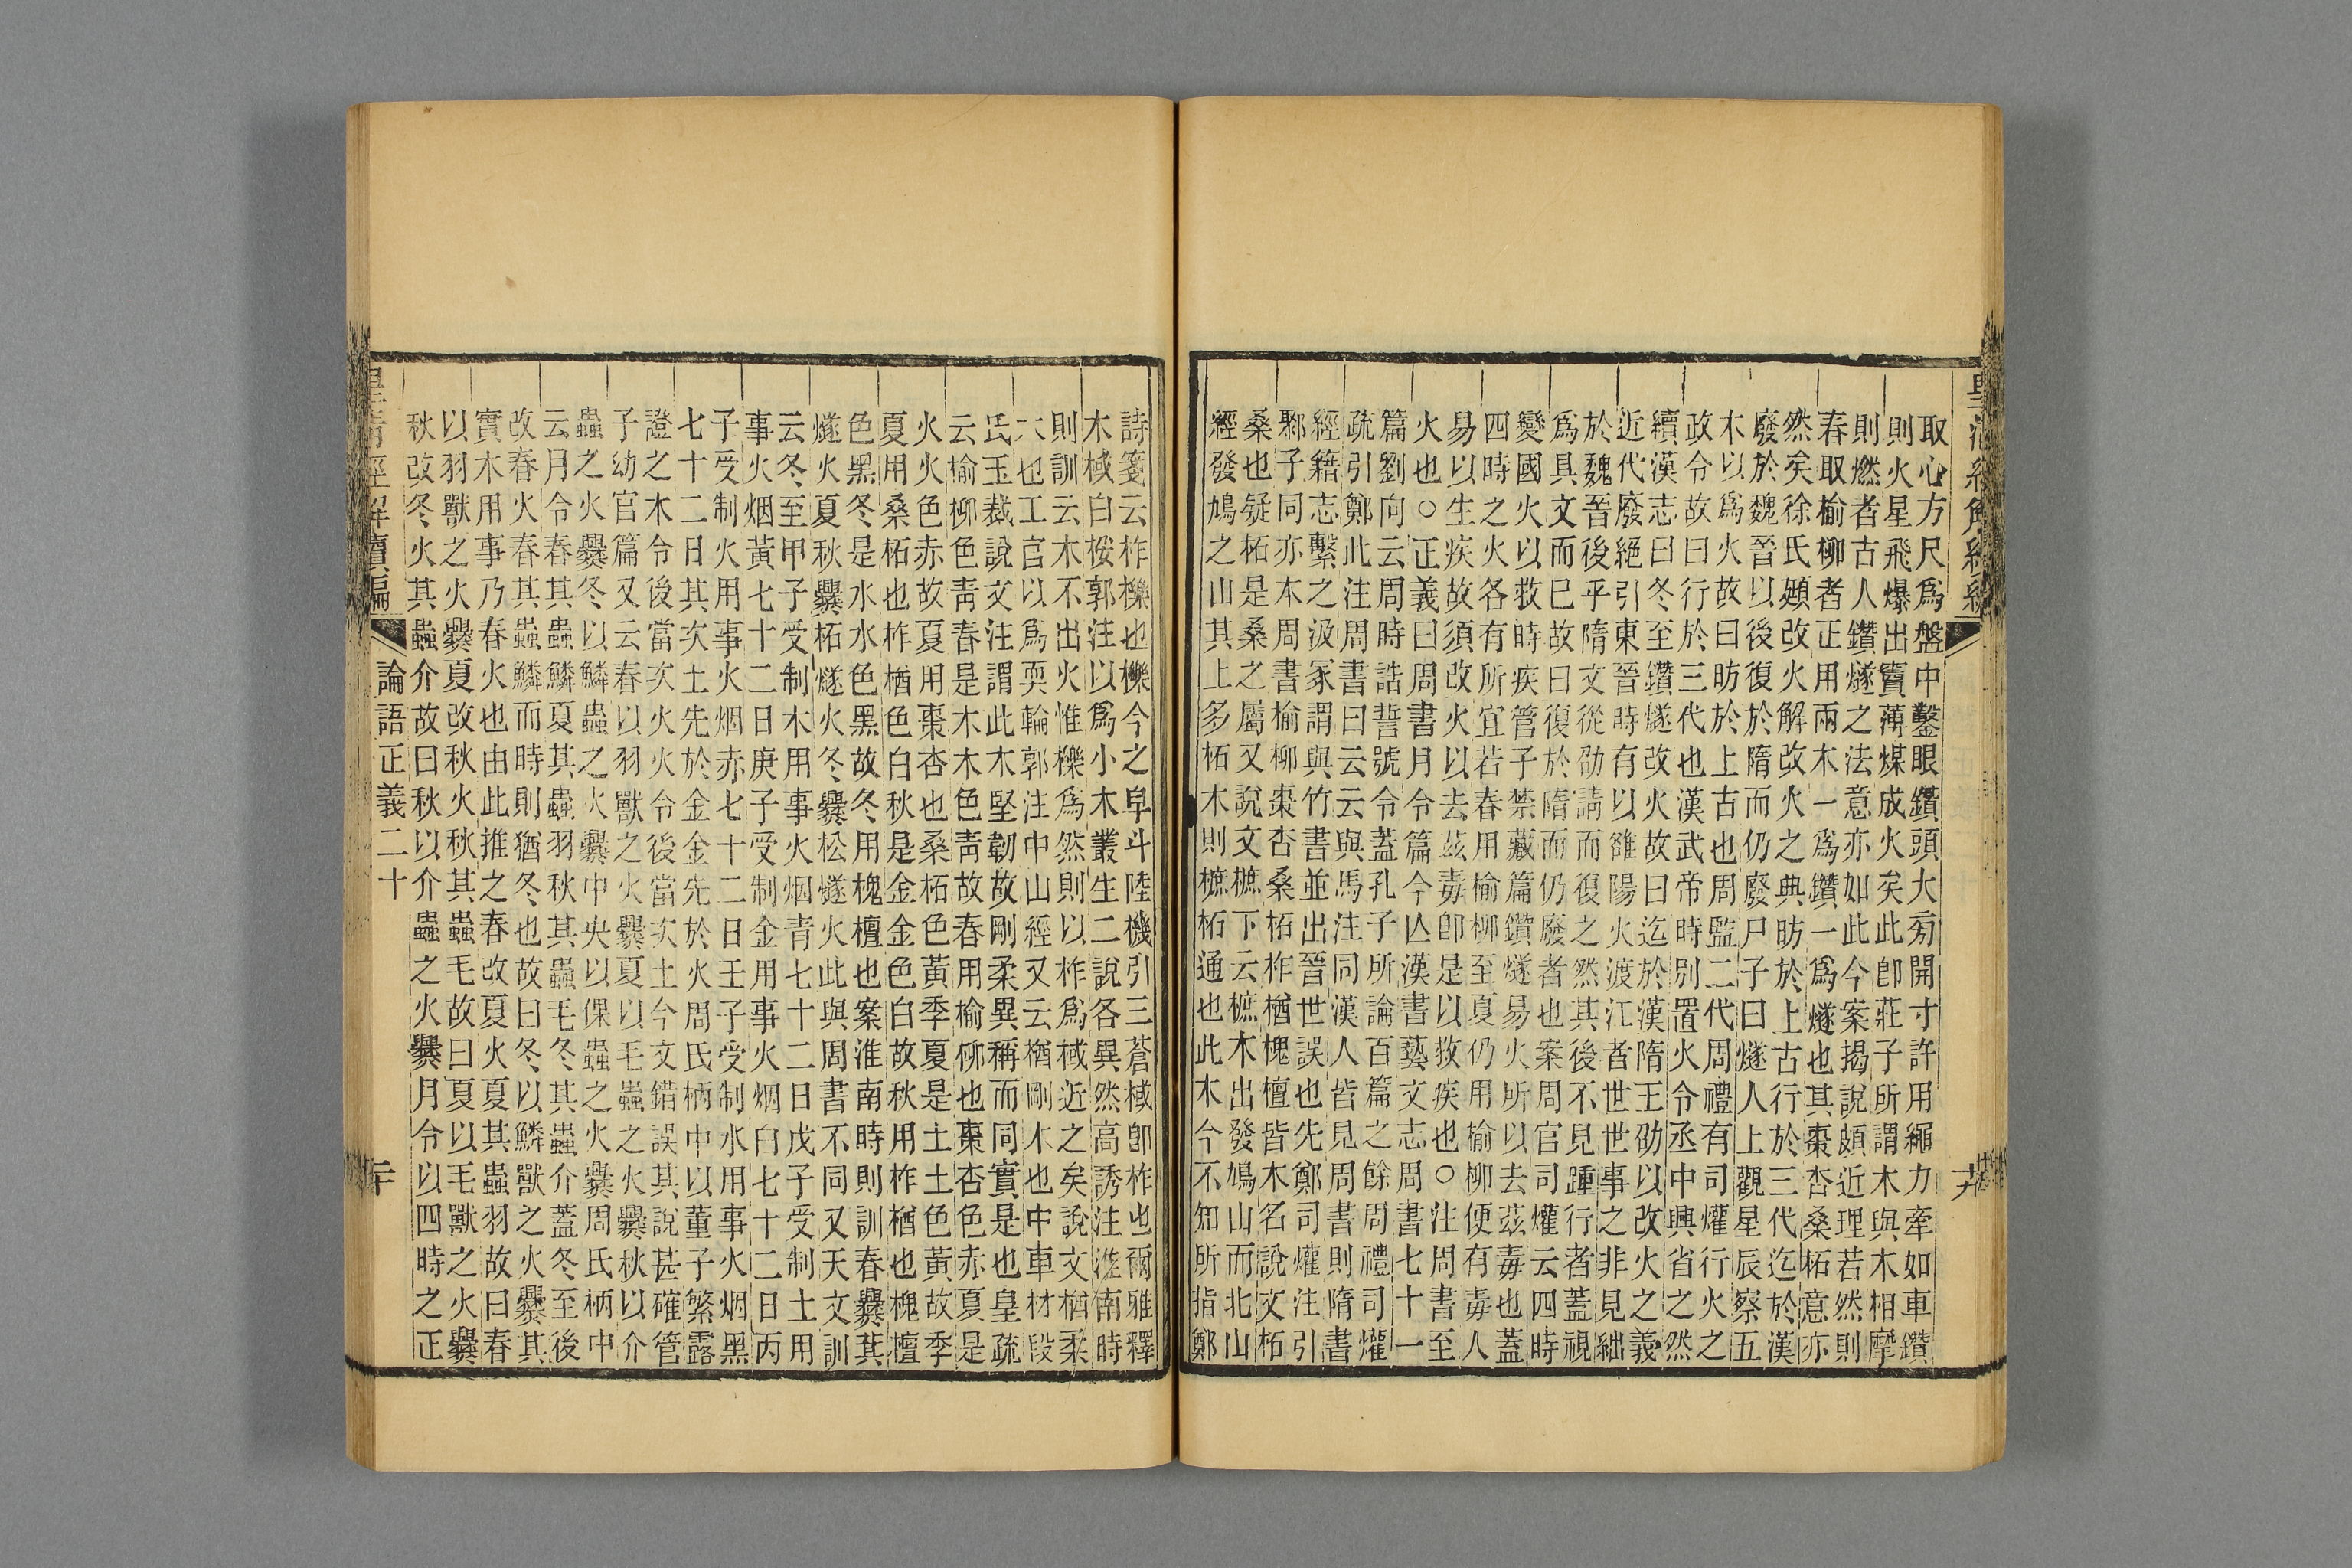 取心方尺爲盤中鑿眼鑽頭大旁開寸許用繩力牽如車鑽
則火星飛爆出竇薄煤成火矣此卽莊子所謂木與木相摩
則燃者古人鑽燧之法意亦如此今案揭說頗近理若然則
春取榆柳者正用兩木一爲鑽一爲燧也其棗杏桑柘意亦
然矣徐氏頲改火解改火之典昉於上古行於三代迄於漢
廢於魏晉以後復於隋而仍廢尸子曰燧人上觀星辰察五
木以爲火故曰昉於上古也周監二代周禮有司爟行火之
政令故曰行於三代也漢武帝時別置火令丞中興省之然
續漢志曰冬至鑽燧改火故曰迄於漢隋王劭以改火之義
近代廢絕引東晉時有以雒陽火渡江者世世事之非見絀
於魏晉後乎隋文從劭請而復之然其後不見踵行者蓋視
爲具文而已故曰復於隋而仍廢者也案周官司爟云四時
變國火以救時疾管子禁藏篇鑽燧易火所以去茲毒也蓋
四時之火各有所宜若春用榆柳至夏仍用榆柳便有毒人
易以生疾故須改火以去茲毒卽是以救疾也○注周書至
火也○正義曰周書月令篇今亾漢書藝文志周書七十一
篇劉向云周時誥誓號令蓋孔子所論百篇之餘周禮司爟
疏引鄭此注周書曰云云與馬注同漢人皆見周書則隋書
經籍志繫之汲冢謂與竹書並出晉世誤也先鄭司爟注引
鄹子同亦木周書榆柳棗杏桑柘柞楢槐檀皆木名說文柘
桑也疑柘是桑之屬又說文樜下云樜木出發鳩山而北山
經發鳩之山其上多柘木則樜柘通也此木今不知所指鄭
詩箋云柞櫟也櫟今之皁斗陸機引三蒼棫卽柞也爾雅釋
木棫白桵郭注以爲小木叢生二說各異然高誘注淮南時
則訓云木不出火惟櫟爲然則以柞爲棫近之矣說文楢柔
木也工官以爲耎輪郭注中山經又云楢剛木也中車材段
氏玉裁說文注謂此木堅韌故剛柔異稱而同實是也皇疏
云榆柳色靑春是木木色靑故春用榆柳也棗杏色赤夏是
火火色赤故夏用棗杏也桑柘色黃季夏是土土色黃故季
夏用桑柘也柞楢色白秋是金金色白故秋用柞楢也槐檀
色黑冬是水水色黑故冬用槐檀也案淮南時則訓春爨萁
燧火夏秋爨柘燧火冬爨松燧火此與周書不同又天文訓
云冬至甲子受制木用事火烟青七十二日戊子受制土用
事火烟黃七十二日庚子受制金用事火烟白七十二日丙
子受制火用事火烟赤七十二日壬子受制水用事火烟黑
七十二日其次土先於金金先於火周氏柄中以董子繁露
證之木令後當次火火令後當次土今文錯誤其說甚確管
子幼官篇又云春以羽獸之火爨夏以毛蟲之火爨秋以介
蟲之火爨冬以鱗蟲之火爨中央以倮蟲之火爨周氏柄中
云月令春其蟲鱗夏其蟲羽秋其蟲毛冬其蟲介蓋冬至後
改春火春其蟲鱗而時則猶冬也故曰冬以鱗獸之火爨其
實木用事乃春火也由此推之春改夏火夏其蟲羽故曰春
以羽獸之火爨夏改秋火秋其蟲毛故曰夏以毛獸之火爨
秋改冬火其蟲介故曰秋以介蟲之火爨月令以四時之正
皇清經解續編
論語正義二十
二十